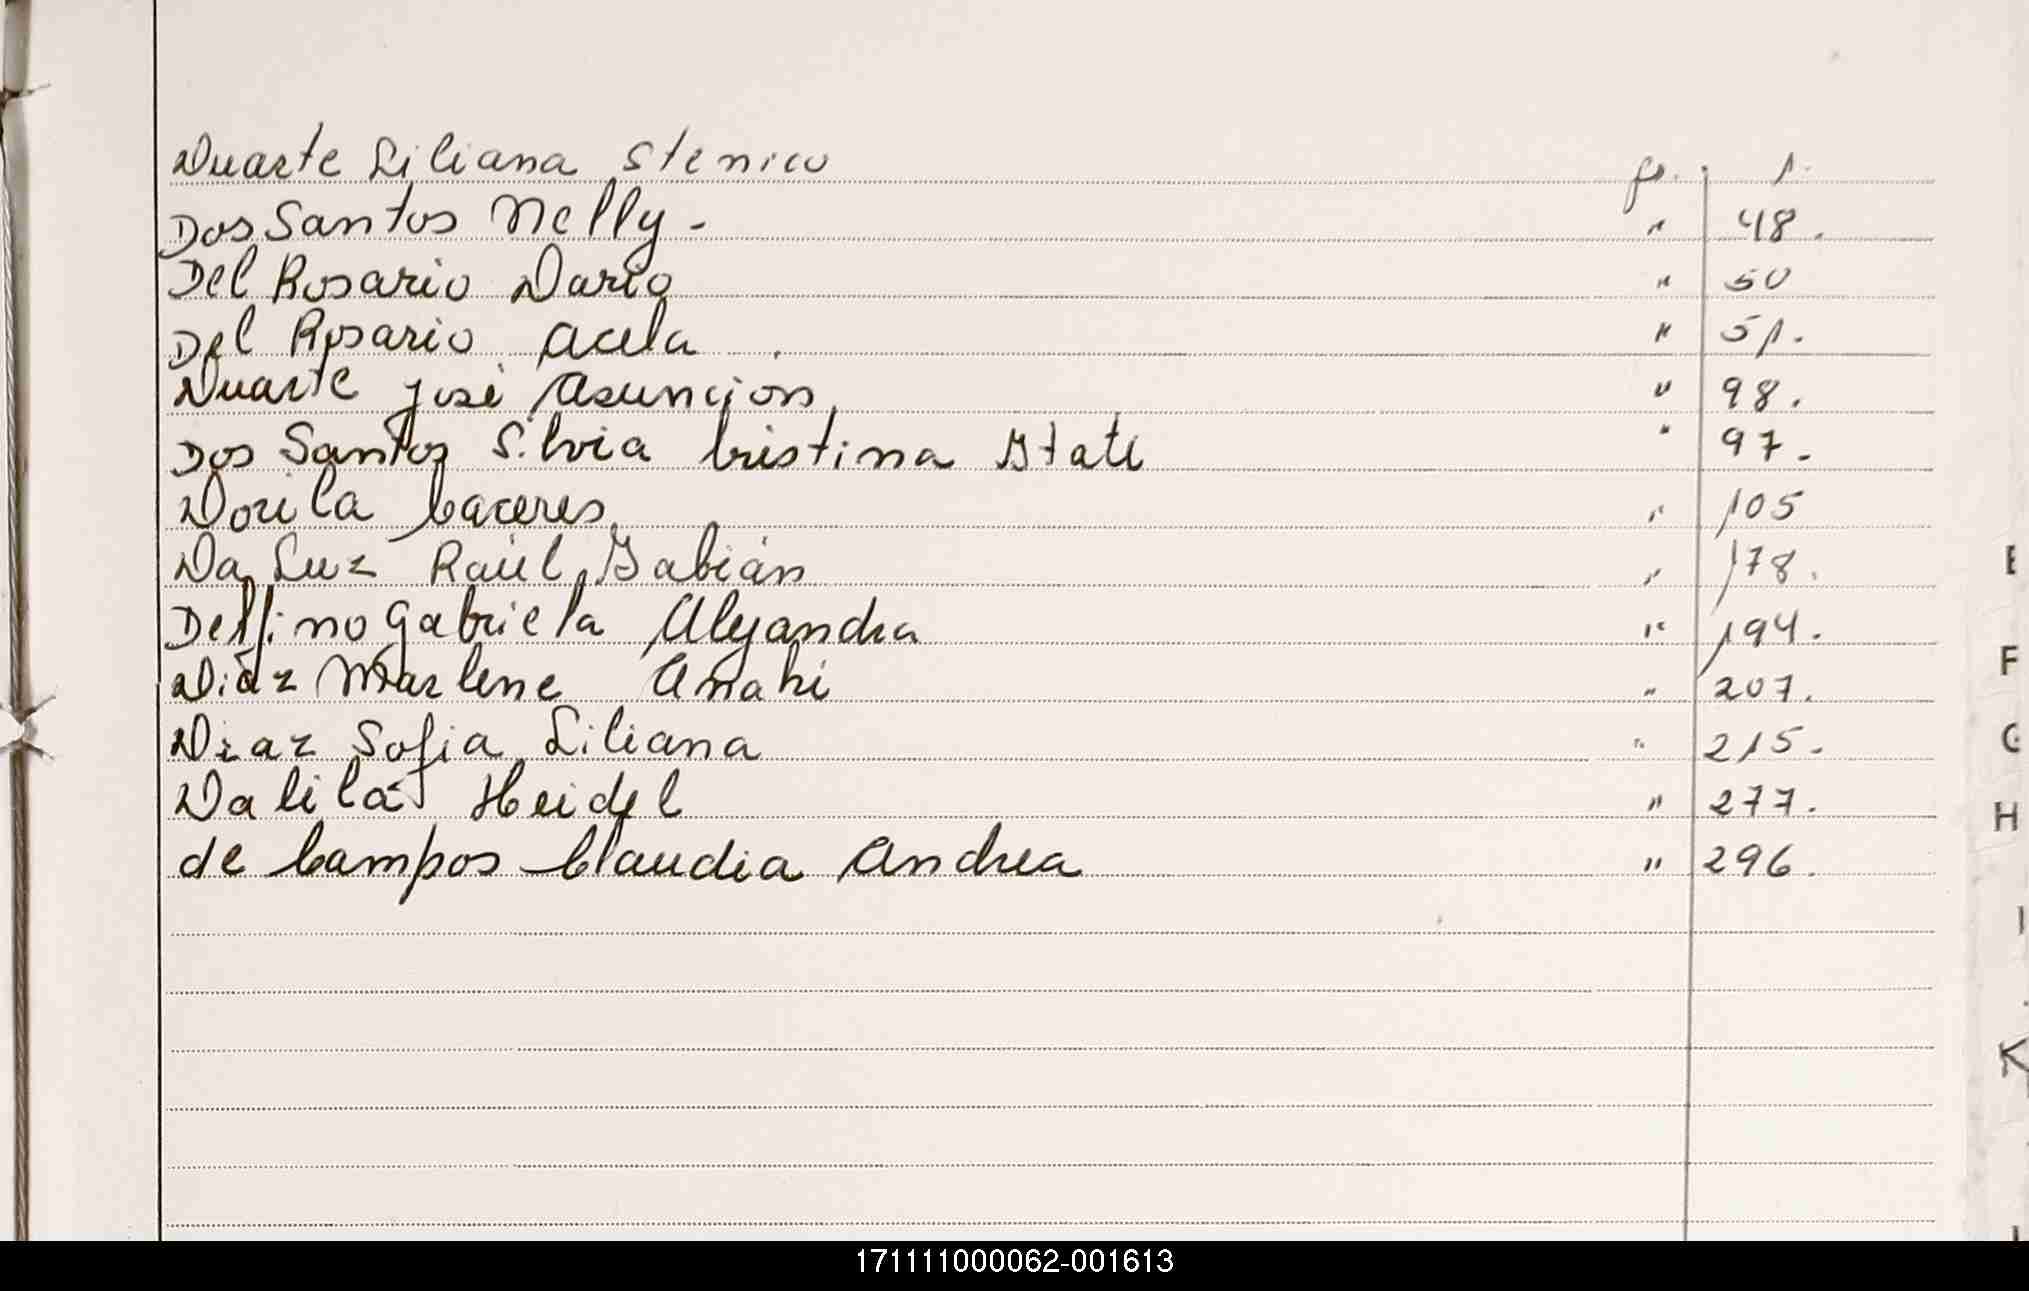 Duarte Liliana Stenico fs. 1.
Dos Santos Nelly - " 48.
Del Rosario Dario " 50
Del Rosario Acela " 51.
Duarte José Asuncion " 98.
Dos Santos Silvia Cristina " 97.
Dorila Caceres " 105
Da Luz Raúl Fabián " 178.
Delfino Gabriela Alejandra " 194.
Diaz Marlene Anahi " 207.
Diaz Sofia Liliana " 215.
Dalila Heidel " 277.
de Campos Claudia Andrea " 296.
E
F
G
H
I
K
171111000062-001613